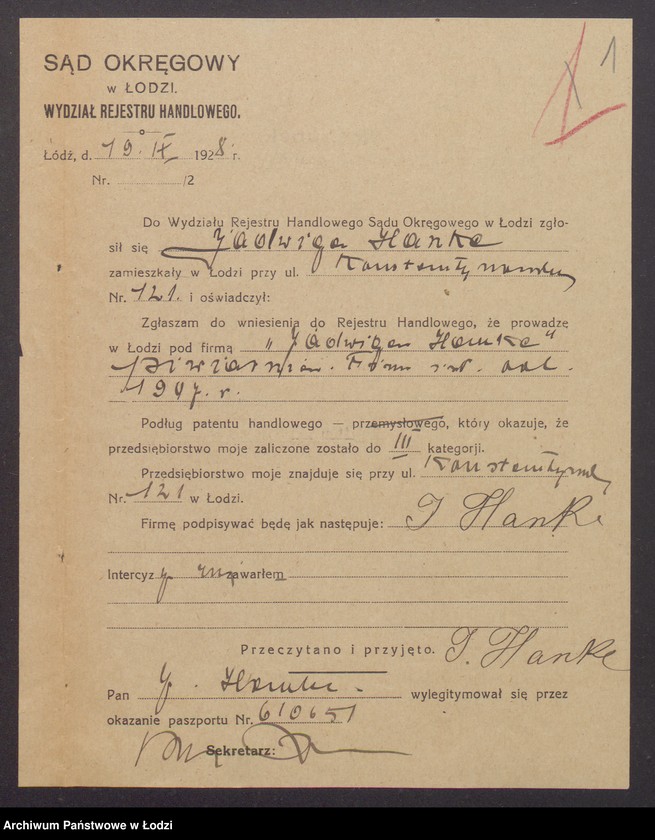 1
SĄD OKRĘGOWY
w ŁODZI.
WYDZIAŁ REJESTRU HANDLOWEGO.
Łódź, d. 19. IX 1928 r.
Nr. /2
Do Wydziału Rejestru Handlowego Sądu Okręgowego w Łodzi zgło-
sił się Jadwiga Hanke
zamieszkały w Łodzi przy ul. Konstantynowska
Nr. 121. i oświadczył:
Zgłaszam do wniesienia do Rejestru Handlowego, że prowadzę
w Łodzi pod firmą „Jadwiga Hanke"
piwiarnia. Firma istn. od
1907. r.
Podług patentu handlowego — przemysłowego, który okazuje, że
przedsiębiorstwo moje zaliczone zostało do III kategorji.
Przedsiębiorstwo moje znajduje się przy ul. Konstantynowska
Nr. 121 w Łodzi.
Firmę podpisywać będę jak następuje: J Hanke
Intercyzy nie zawarłem
Przeczytano i przyjęto. J. Hanke
Pan J. Hanke. wylegitymował się przez
okazanie paszportu Nr. 610651
Sekretarz:
Archiwum Państwowe w Łodzi